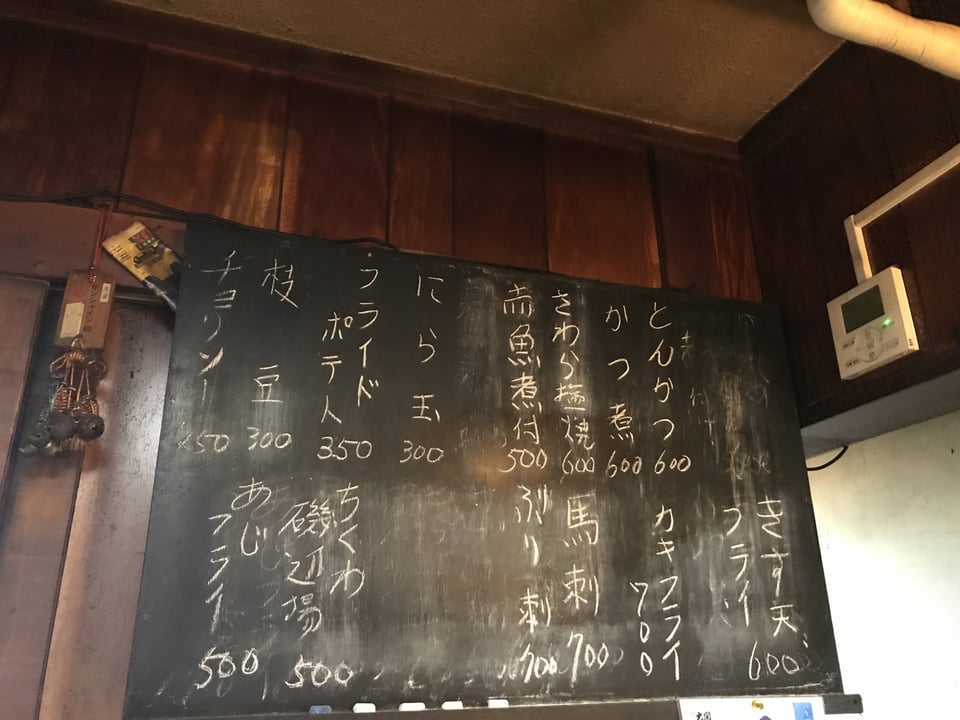 とんかつ 600
かつ煮 600
さわら塩焼 600
赤魚煮付 500
にら玉 300
フライド
ポテト 350
枝豆 300
チョリソー 450
きす天 600
フライ
カキフライ
700
馬刺 700
ぶり刺 700
ちくわ
磯辺揚 500
あじ
フライ 500